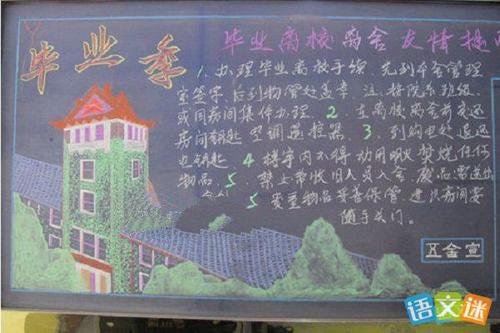 毕业季
毕业离校离舍 友情提
1. 办理毕业离校手续，先到本舍管理
室签字，后到物管处盖章 注：将院系班级
或同房间集体办理 2. 在离校离舍前交还
房间钥匙 空调遥控器 3. 到购电处退还
电 4. 楼宇内不得动用明火焚烧任何
物品 5. 禁止带收旧人员入舍，废品需送出
5 贵重物品妥善保管，建议房间要
随手关门。
五舍宣
语文迷